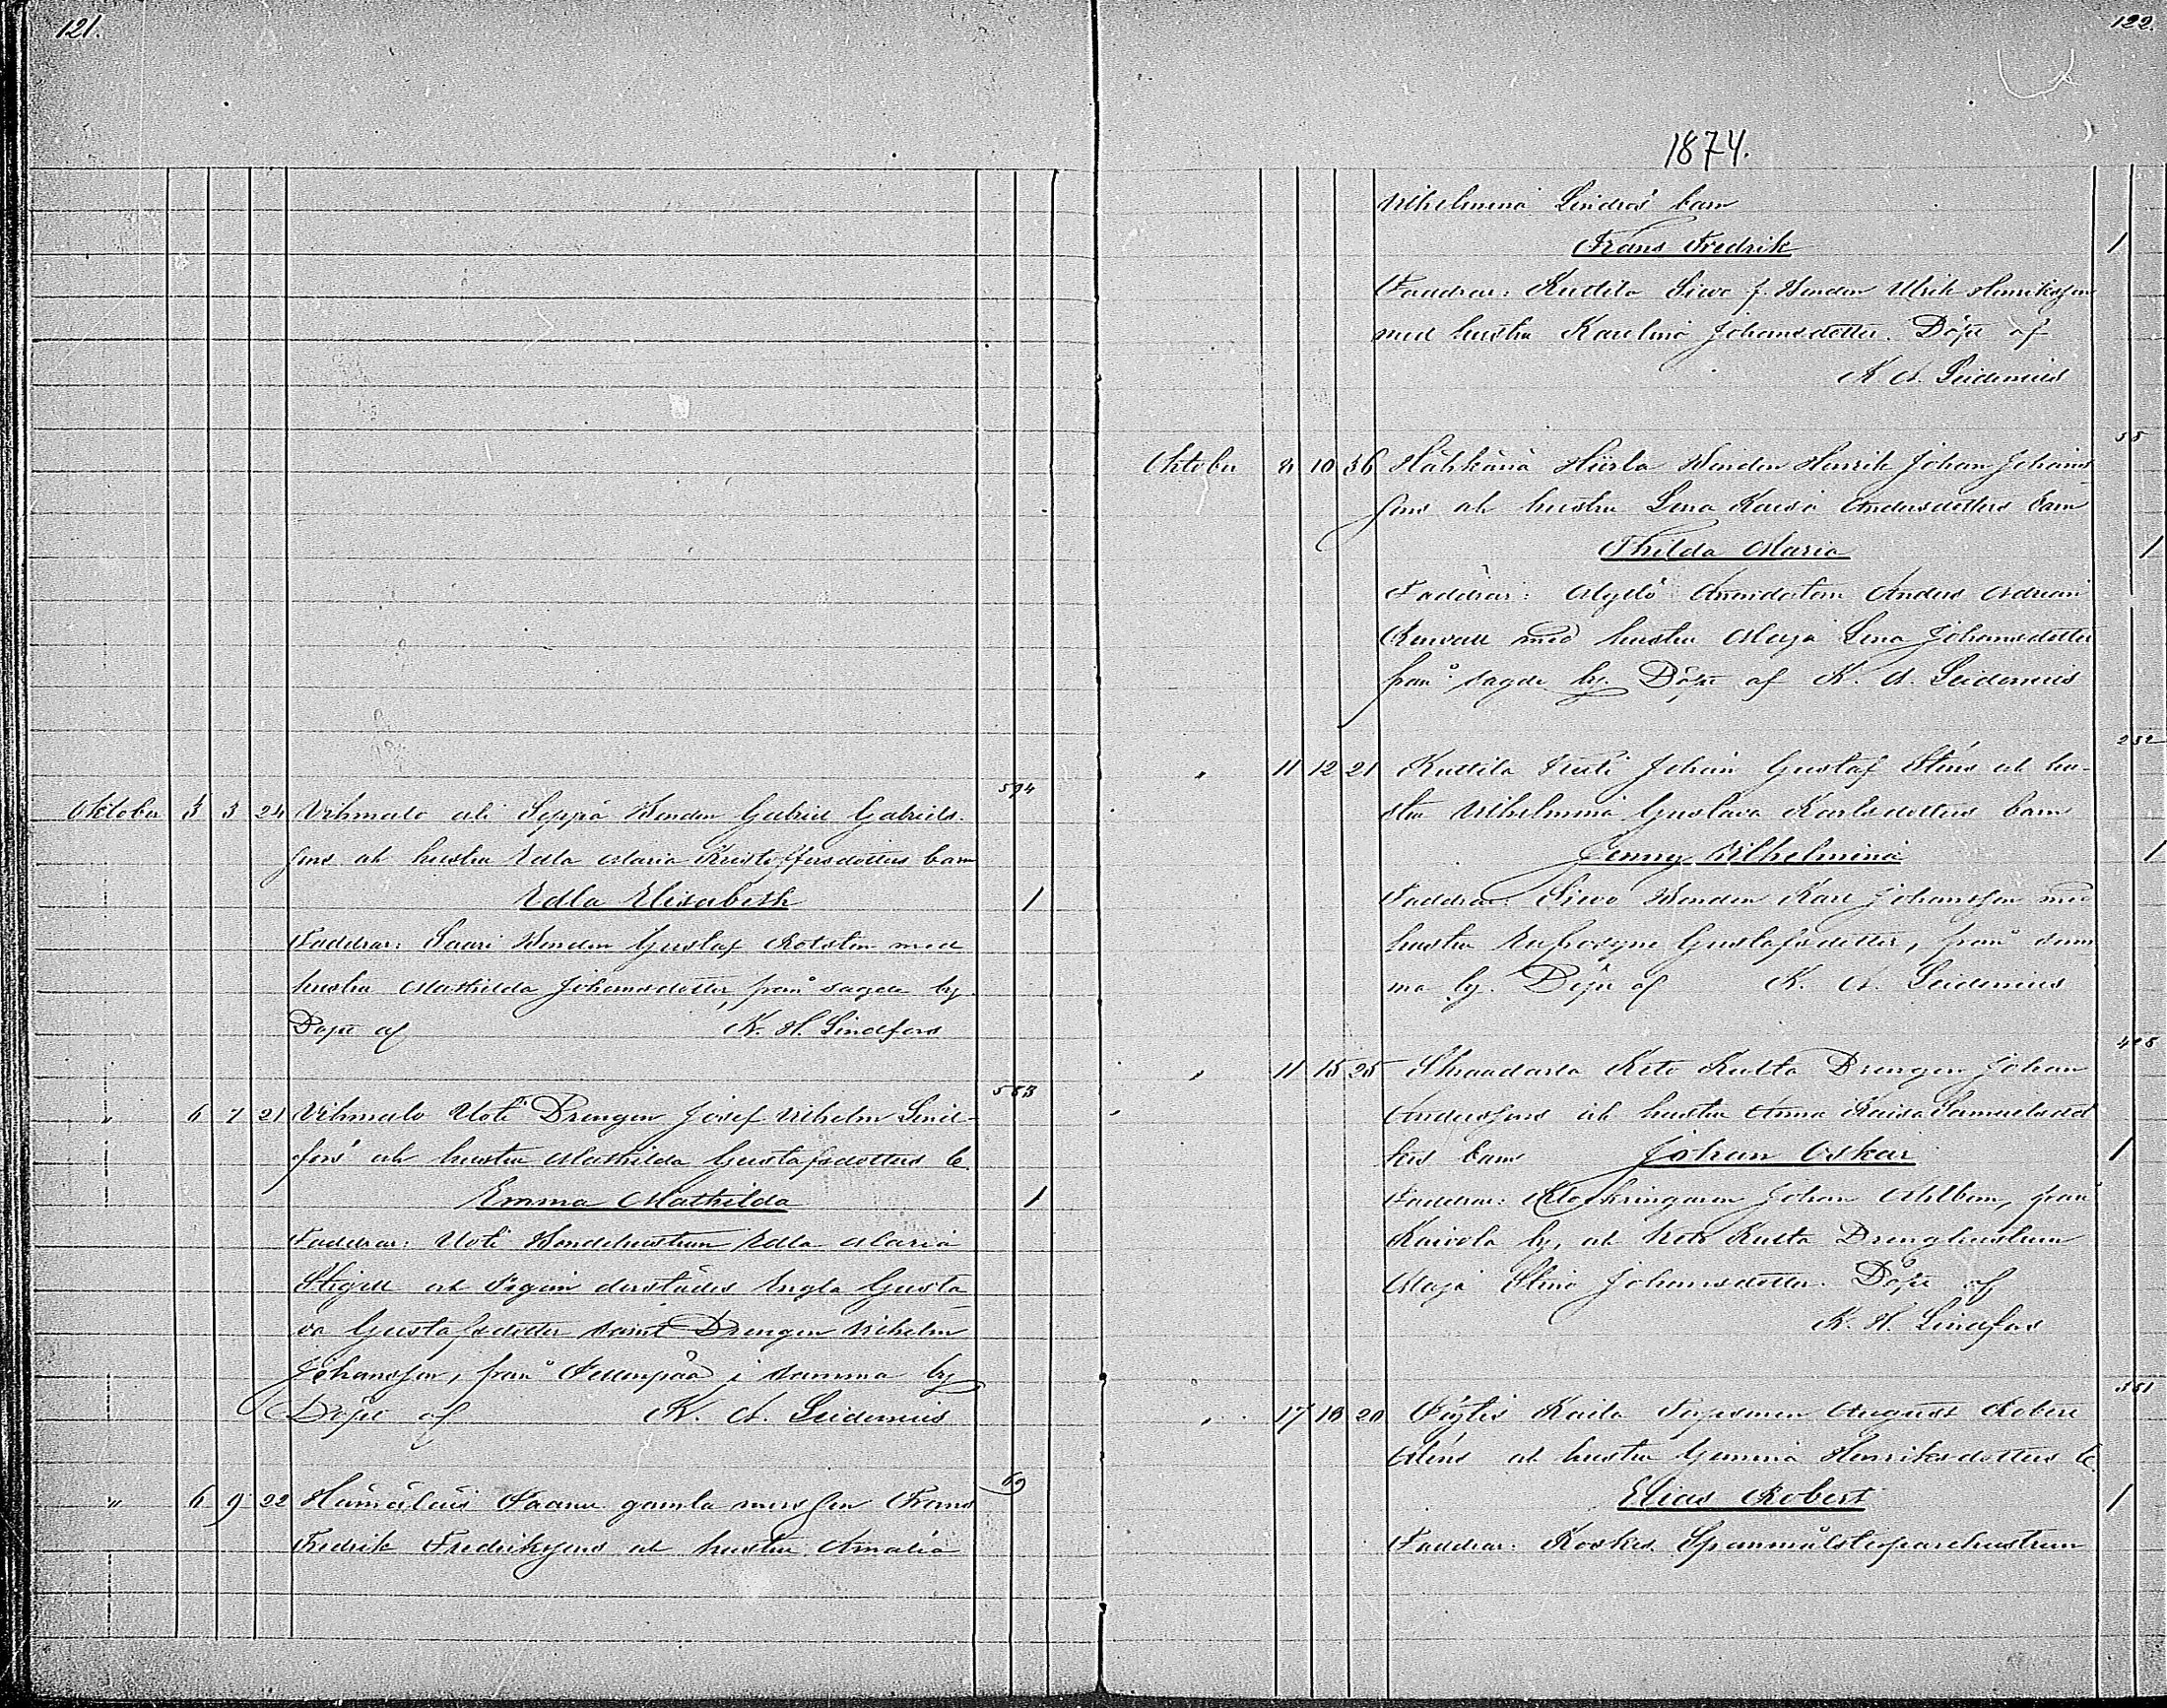 121.
594
Oktober 3 3 24 Vihmalo ali Seppä Bonden Gabriel Gabriels-
sons och hustru Edla Maria Kristoffersdotters barn
Edla Elisabeth 1
Faddrar: Saari Bonden Gustaf Rotsten med
hustru Mathilda Johansdotter, från sagde by.
Döpt af K. H. Lindfors
583
" 6 7 21 Vihmalo Uoti Drengen Josef Vilhelm Lind-
fors' och hustru Mathilda Gustafsdotters b.
Emma Mathilda 1
Faddrar: Uoti Bondehustrun Edla Maria
och Pigan derstädes Engla Gusta-
va Gustafsdotter samt Drengen Vilhelm
Johansson, från i samma by
Döpt af K. A. Leidenius
69
" 6 9 22 Paanu gamla Frans
Fredrik Fredrikssons och hustru Amalia
122.
1874.
Vilhelmina Lindros' barn
Frans Fredrik 1
Faddrar: Kuttila Siwo f. Bonden Ulrik Henriksson
med hustru Karolina Johansdotter. Döpt af
K. A. Leidenius
55
Oktober 8 10 36 Hiirla Bonden Henrik Johan Johans-
sons och hustru Lena Kaisa Andersdotters barn
Thilda Maria 1
Faddrar: Arendatorn Anders Adrian
med hustru Maja Lena Johansdotter
från sagde by. Döpt af K. A. Leidenius
252
" 11 12 21 Kuttila Johan Gustaf Sténs och hu-
stru Vilhelmina Gustava Karlsdotters barn
Jenny Vilhelmina 1
Faddrar: Siwo Bonden Karl Johansson med
hustru Eufrosyne Gustafsdotter, från sam-
ma by. Döpt af K. A. Leidenius
" 11 15 25 Keto Kulta Drengen Johan
Anderssons och hustru Anna Kaisa Samuelsdot-
ters barn Johan Oskar 1
Faddrar: Klockringaren Johan Ahlbom, från
Kaivola by, och Keto Kulta Dränghustrun
Maja Stina Johansdotter. Döpt af
K. H. Lindfors
351
" 17 18 20 Kaila August Robert
och hustru Gemima Henriksdotters b.
Elias Robert 1
Faddrar: Koskis